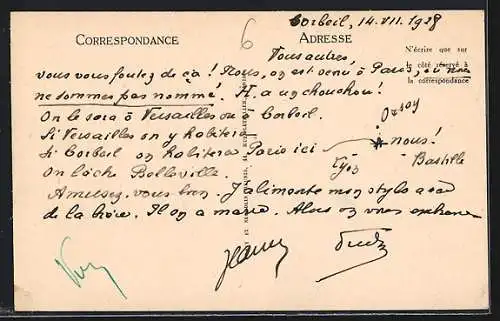 Corbeil, 14.VII.1928
CORRESPONDANCE
ADRESSE
6
N'écrire que sur
le côté réservé à
la correspondance
Vous autres,
vous vous foutez de ça ! Nous, on est venu à Paris, où nous
ne sommes pas nommé ! Y. a un chouchou !
On le sera à Versailles ou à Corbeil.
Si Versailles on y habitera
Orsay
Si Corbeil on habitera Paris ici
nous !
Lyon
Bastille
On lâche Belleville.
Amusez-vous bien. J'alimente mon stylo
de la bière. Il y en a marre. Alors on vous